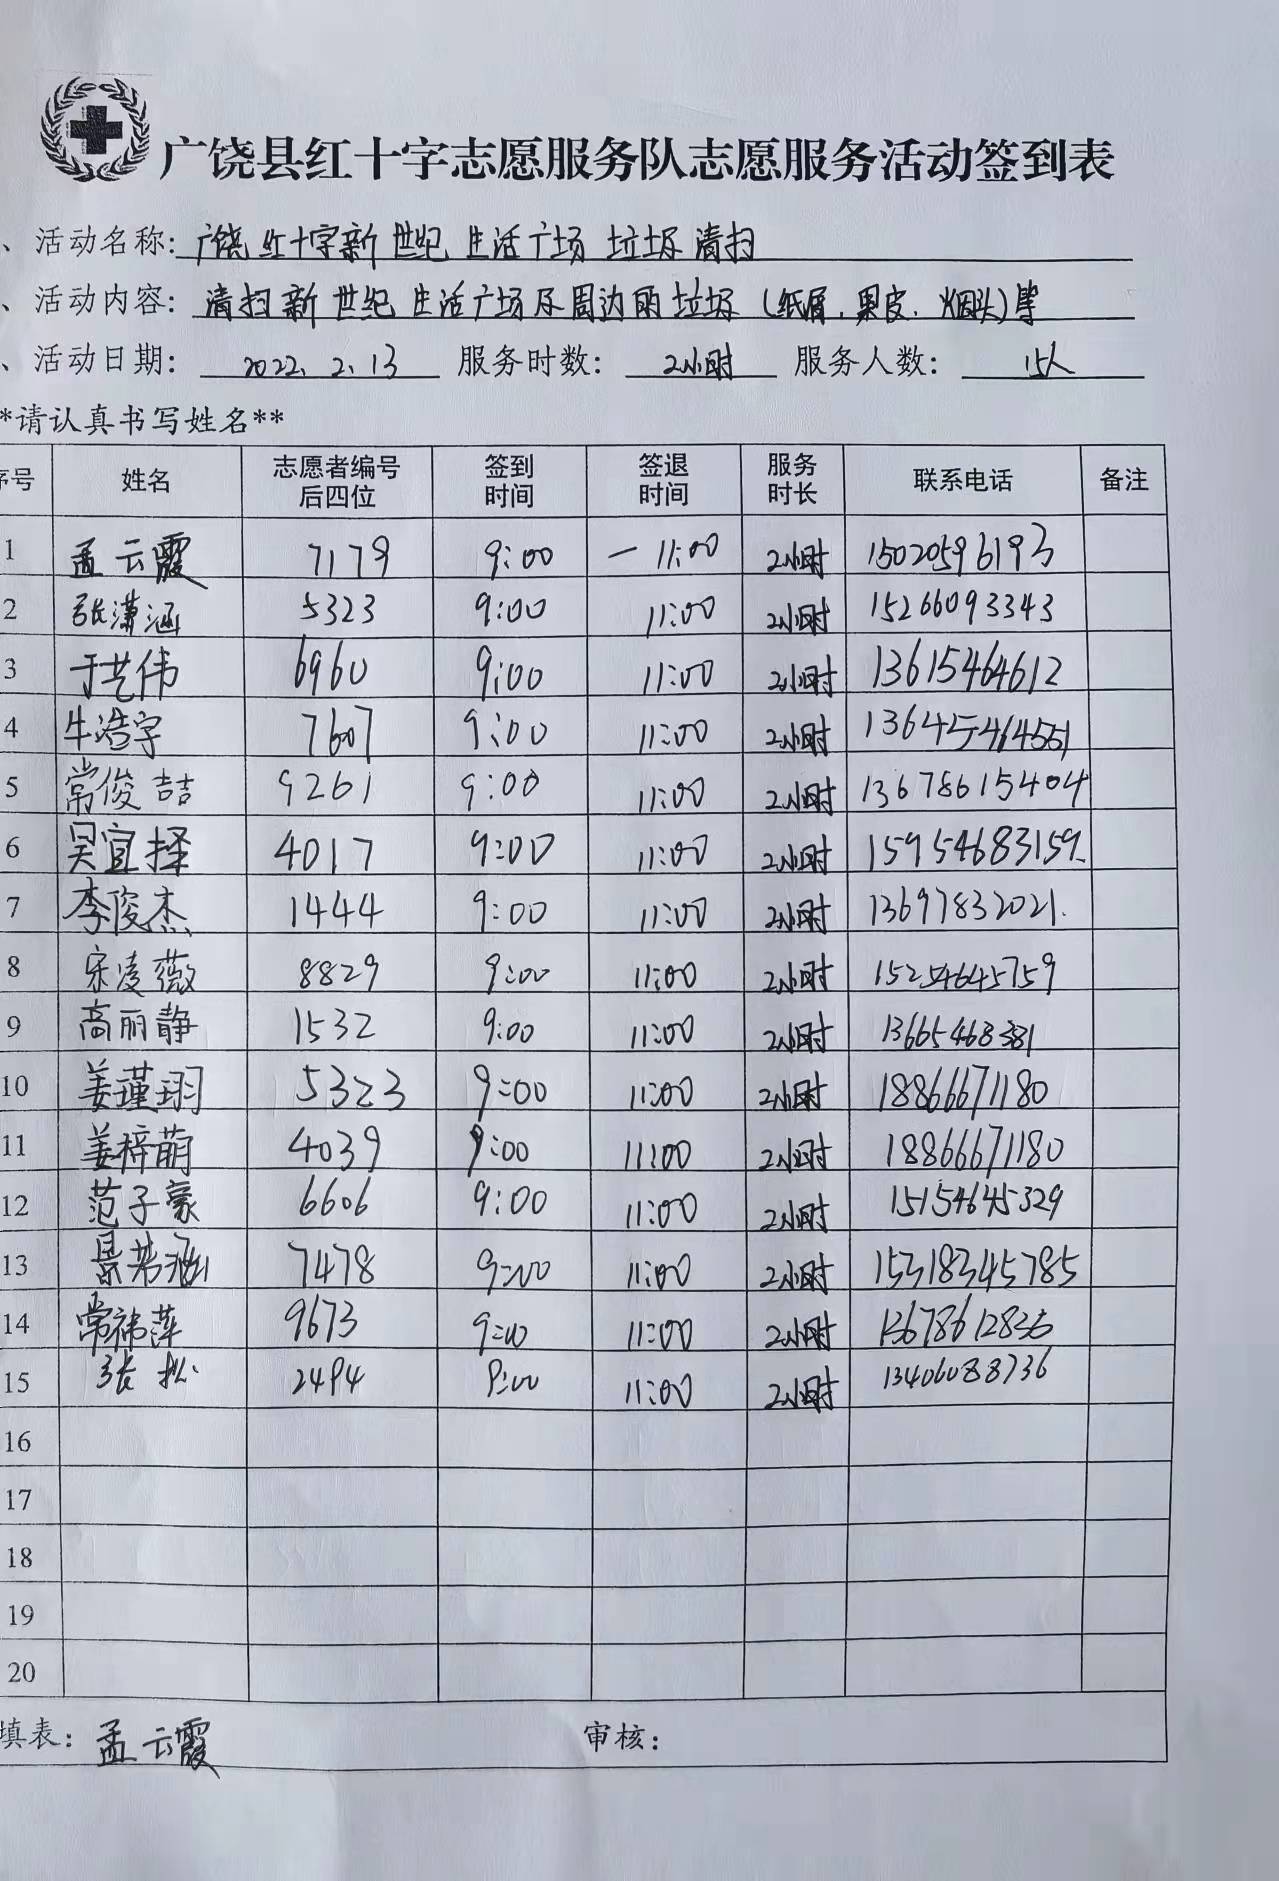 广饶县红十字志愿服务队志愿服务活动签到表
、活动名称: 广饶红十字新世纪生活广场垃圾清扫
、活动内容: 清扫新世纪生活广场及周边的垃圾(纸屑、果皮、烟头)等
、活动日期: 2022.2.13 服务时数: 2小时 服务人数: 15人
*请认真书写姓名**
序号 姓名 志愿者编号后四位 签到时间 签退时间 服务时长 联系电话 备注
1 孟云霞 7179 9:00 — 11:00 2小时 15020596193
2 张潇涵 5323 9:00 11:00 2小时 15266093343
3 于艺伟 6960 9:00 11:00 2小时 13615464612
4 牛浩宇 7607 9:00 11:00 2小时
5 常俊喆 9261 9:00 11:00 2小时 13678615404
6 吴宜择 4017 9:00 11:00 2小时 15954683159.
7 李俊杰 1444 9:00 11:00 2小时 13697832021.
8 宋凌薇 8829 9:00 11:00 2小时 15254645759
9 高丽静 1532 9:00 11:00 2小时
10 姜瑾玥 5323 9:00 11:00 2小时 18866671180
11 姜梓萌 4039 9:00 11:00 2小时 18866671180
12 范子豪 6606 9:00 11:00 2小时 15154645329
13 7478 9:00 11:00 2小时 15318345785
14 常祎萍 9673 9:00 11:00 2小时
15 张 2494 9:00 11:00 2小时 13406088736
16
17
18
19
20
填表: 孟云霞 审核: